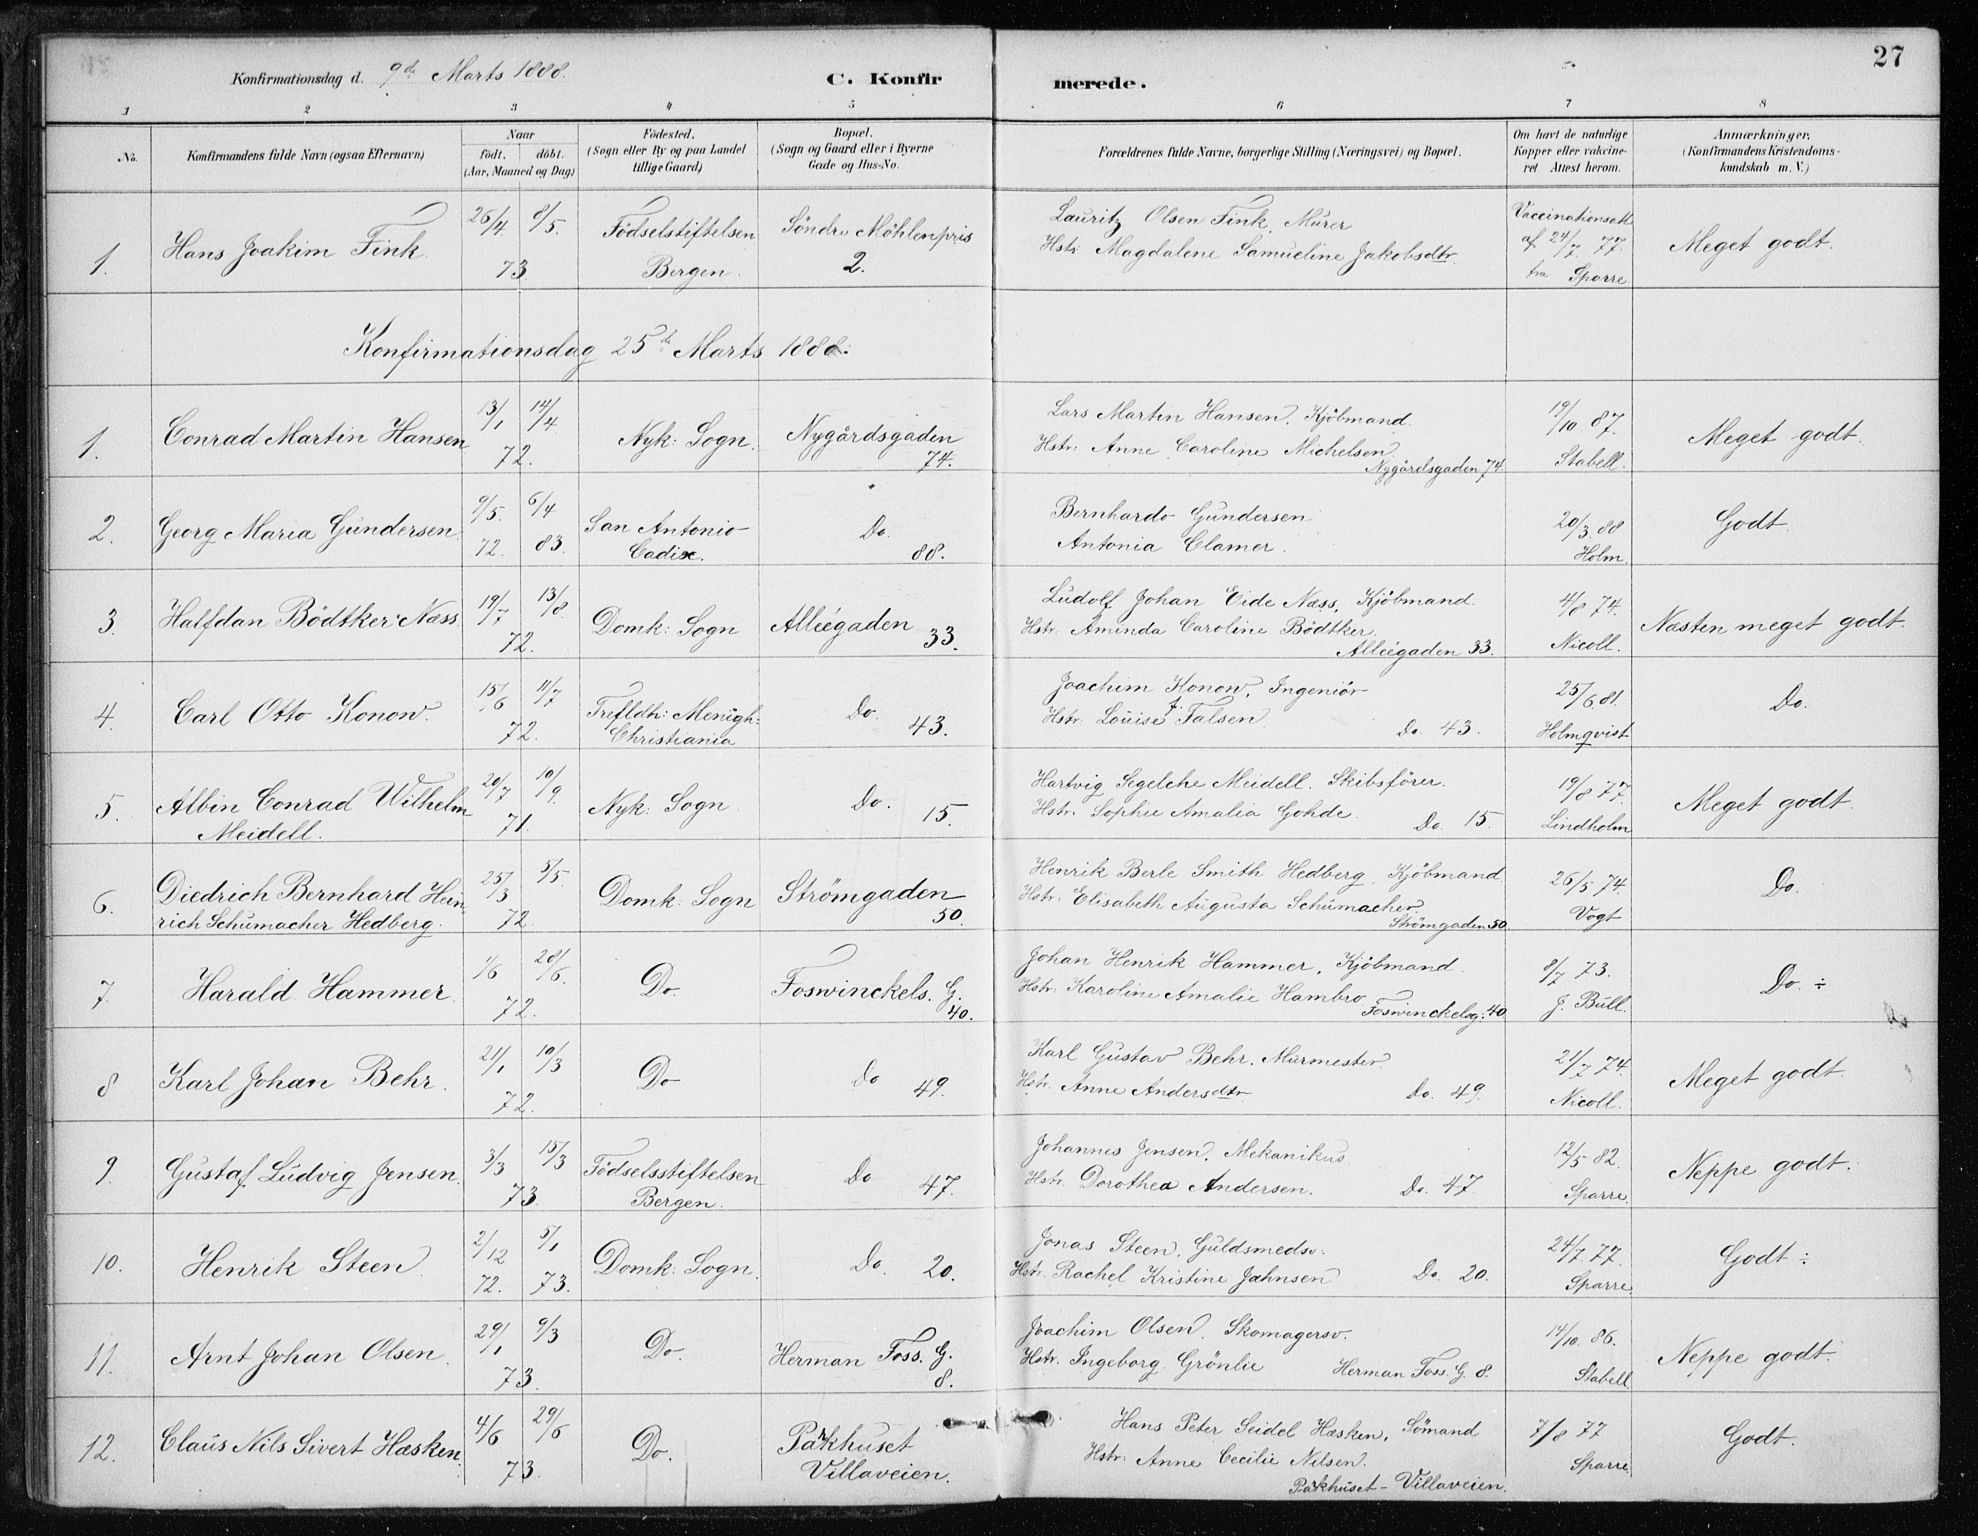 27
Konfirmationsdag d. 9de Marts 1888.
C. Konfir merede.
1 2 3 4 5 6 7 8
No.
Konfirmandens fulde Navn (ogsaa Efternavn)
Naar
födt. döbt.
(Aar, Maaned og Dag)
Födested.
(Sogn eller By og paa Landet
tillige Gaard)
Bopæl.
(Sogn og Gaard eller i Byerne
Gade og Hus-No.
Forældrenes fulde Navne, borgerlige Stilling (Næringsvei) og Bopæl.
Om havt de naturlige
Kopper eller vakcine-
ret Attest herom.
Anmærkninger.
(Konfirmandens Kristendoms-
kundskab m. V.)
1. Hans Joakim Fink
26/4 8/5.
73
Födselstiftelsen
Bergen.
Söndre Möhlenpris
2.
Lauritz Olsen Fink, Murer
Hstr. Magdalene Samueline Jakobsdtr.
Vaccinationsatt.
af 24/7 77.
fra Sparre
Meget godt.
Konfirmationsdag 25de Marts 1888.
1. Conrad Martin Hansen
13/1 14/4
72.
Nyk: Sogn.
Nygårdsgaden
74.
Lars Martin Hansen, Kjöbmand.
Hstr. Anne Caroline Michelsen
Nygårdsgaden 74.
19/10 87.
Stabell.
Meget godt.
2. Georg Maria Gundersen.
9/5. 6/4
72. 83.
San Antonio
Cadix.
Do.
88.
Bernhardo Gundersen
Antonia Clamer.
20/3.88
Holm.
Godt.
3. Halfdan Bödtker Næss.
19/7 13/8
72.
Domk: Sogn
Alléegaden
33.
Ludolf Johan Eide Næss, Kjöbmand.
Hstr. Aminda Caroline Bödtker
Alléegaden 33.
4/8 74.
Nicoll.
Næsten meget godt.
4. Carl Otto Konow.
15/6 11/7
72.
Trefldh: Menigh:
Christiania
Do.
43.
Joachim Konow, Ingeniör
Hstr. Louise f. Falsen
Do. 43.
25/6 81.
Holmqvist
Do.
5. Albin Conrad Wilhelm
Meidell.
20/7 10/9.
71.
Nyk: Sogn.
Do.
15.
Hartvig Segelche Meidell. Skibsförer.
Hstr. Sophie Amalia Gohde.
Do. 15.
19/8 77.
Lindholm
Meget godt.
6. Diedrich Bernhard Hein-
rich Schumacher Hedberg.
25/3 5/5.
72.
Domk: Sogn
Strömgaden
50.
Henrik Berle Smith Hedberg, Kjöbmand.
Hstr. Elisabeth Augusta Schumacher
Strömgaden 50.
26/5 74.
Vogt
Do.
7. Harald Hammer.
1/6 28/6.
72.
Do.
Foswinckels. G.
40.
Johan Henrik Hammer, Kjöbmand.
Hstr. Karoline Amalie Hambro
Foswinckelsg: 40
8/7 73.
J. Bull.
Do. ÷
8 Karl Johan Behr.
21/1 10/3
72.
Do
Do
49.
Karl Gustav Behr. Murmester.
Hstr. Anne Andersdtr.
Do. 49.
21/7 74.
Nicoll.
Meget godt.
9. Gustaf Ludvig Jensen.
3/3 15/3
73.
Födselsstiftelsen
Bergen.
Do
47.
Johannes Jensen, Mekanikus
Hstr. Dorothea Andersen.
Do. 47.
12/5 82.
Sparre.
Neppe godt.
10. Henrik Steen.
2/12 5/1
72. 73.
Domk: Sogn.
Do.
20.
Jonas Steen, Guldsmedsv:
Hstr. Rachel Kristine Jahnsen
Do. 20.
24/7 77.
Sparre
Godt ÷
11. Arnt Johan Olsen.
29/1 9/3
73.
Do.
Herman Foss. G.
8.
Joachim Olsen, Skomagersv.
Hstr. Ingeborg Grönlie
Herman Foss. G. 8.
14/10. 86.
Stabell
Neppe godt.
12. Claus Nils Sivert Hæsken.
4/6 29/6
73.
Do.
Pakhuset
Villaveien.
Hans Peter Seidel Hæsken, Sömand
Hstr: Anne Cecilie Nilsen.
Pakhuset - Villaveien.
7/8 77
Sparre.
Godt.